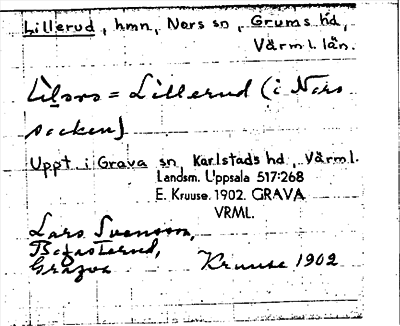 Lillerud, hmn, Nors sn, Grums hd,
Värml. län.
= Lillerud (i Nors
socken)
Uppt. i Grava sn, Karlstads hd, Värml.
Landsm. Uppsala 517:268
E. Kruuse. 1902. GRAVA
VRML.
Lars Svensson,
Grava
Kruuse 1902